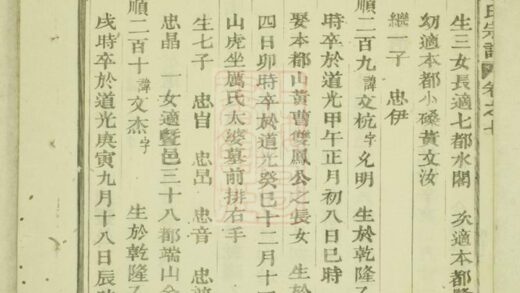 氏宗譜 卷之七
生三女長適七都水閣 次適本都
幼適本都小磉黃文汝
繼一子 忠伊
順二百九 諱文杭字允明 生於乾隆
時卒於道光甲午正月初八日巳時
娶本都山黃曹雙鳳公之長女 生於
四日卯時卒於道光癸巳十二月十
山虎坐厲氏太婆墓前排右手
生七子 忠 忠昆 忠音 忠
忠晶 一女適暨邑三十八都端山
順二百十 諱文杰字 生於乾隆
戌時卒於道光庚寅九月十八日辰